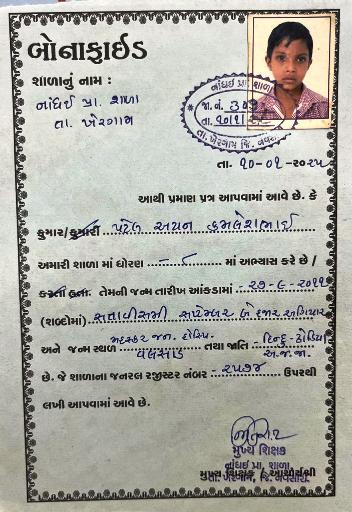 બોનાફાઈડ
શાળાનું નામ :
નાંધઈ પ્રા. શાળા
તા. ખેરગામ
નાંધઈ પ્રા. શાળા
જા. નં. 303
તા.
તા. ખેરગામ જિ. નવસારી
તા. ૨૦-૦૧-૨૦૨૫
આથી પ્રમાણ પત્ર આપવામાં આવે છે. કે
કુમાર/કુમારી પટેલ અયન કમલેશભાઈ
અમારી શાળા માં ધોરણ - ૮ માં અભ્યાસ કરે છે /
કરતા હતા. તેમની જન્મ તારીખ આંકડામાં - ૨૭-૯-૨૦૧૧
(શબ્દોમાં) સત્તાવીસમી સપ્ટેમ્બર બે હજાર અગિયાર
જન. હોસ્પિ.
અને જન્મ સ્થળ વલસાડ તથા જાતિ - હિન્દુ-ઢોડિયા
અ.જ.જા.
છે. જે શાળાના જનરલ રજીસ્ટર નંબર - ૨૫૭૪ ઉપરથી
લખી આપવામાં આવે છે.
મુખ્ય શિક્ષક
નાંધઈ પ્રા. શાળા,
મુખ્ય શિક્ષક / આચાર્યશ્રી
તા. ખેરગામ, જિ. નવસારી.